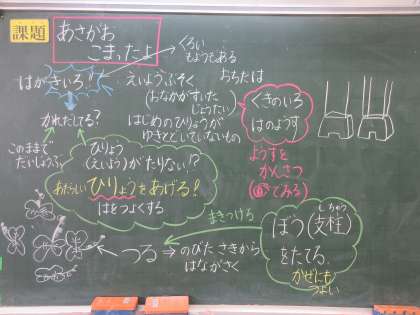 課題
あさがお
こまったよ
くろい
もようもある
はがきいろ!!
えいようぶそく
(おなかがすいた
じょうたい)
おちたは
くきのいろ
はのようす
かれだしてる?
はじめのひりょうが
ゆきとどいていないもの
このままで
だいじょうぶ?
ひりょう
(えいよう)がたりない!?
あたらしいひりょうをあげる!
はをつよくする
ようすを
かんさつ
てみる)
まきつける
ぼう(支柱)
しちゅう
をたてる。
かぜにも
つよい
つる⇒のびたさきから
はながさく